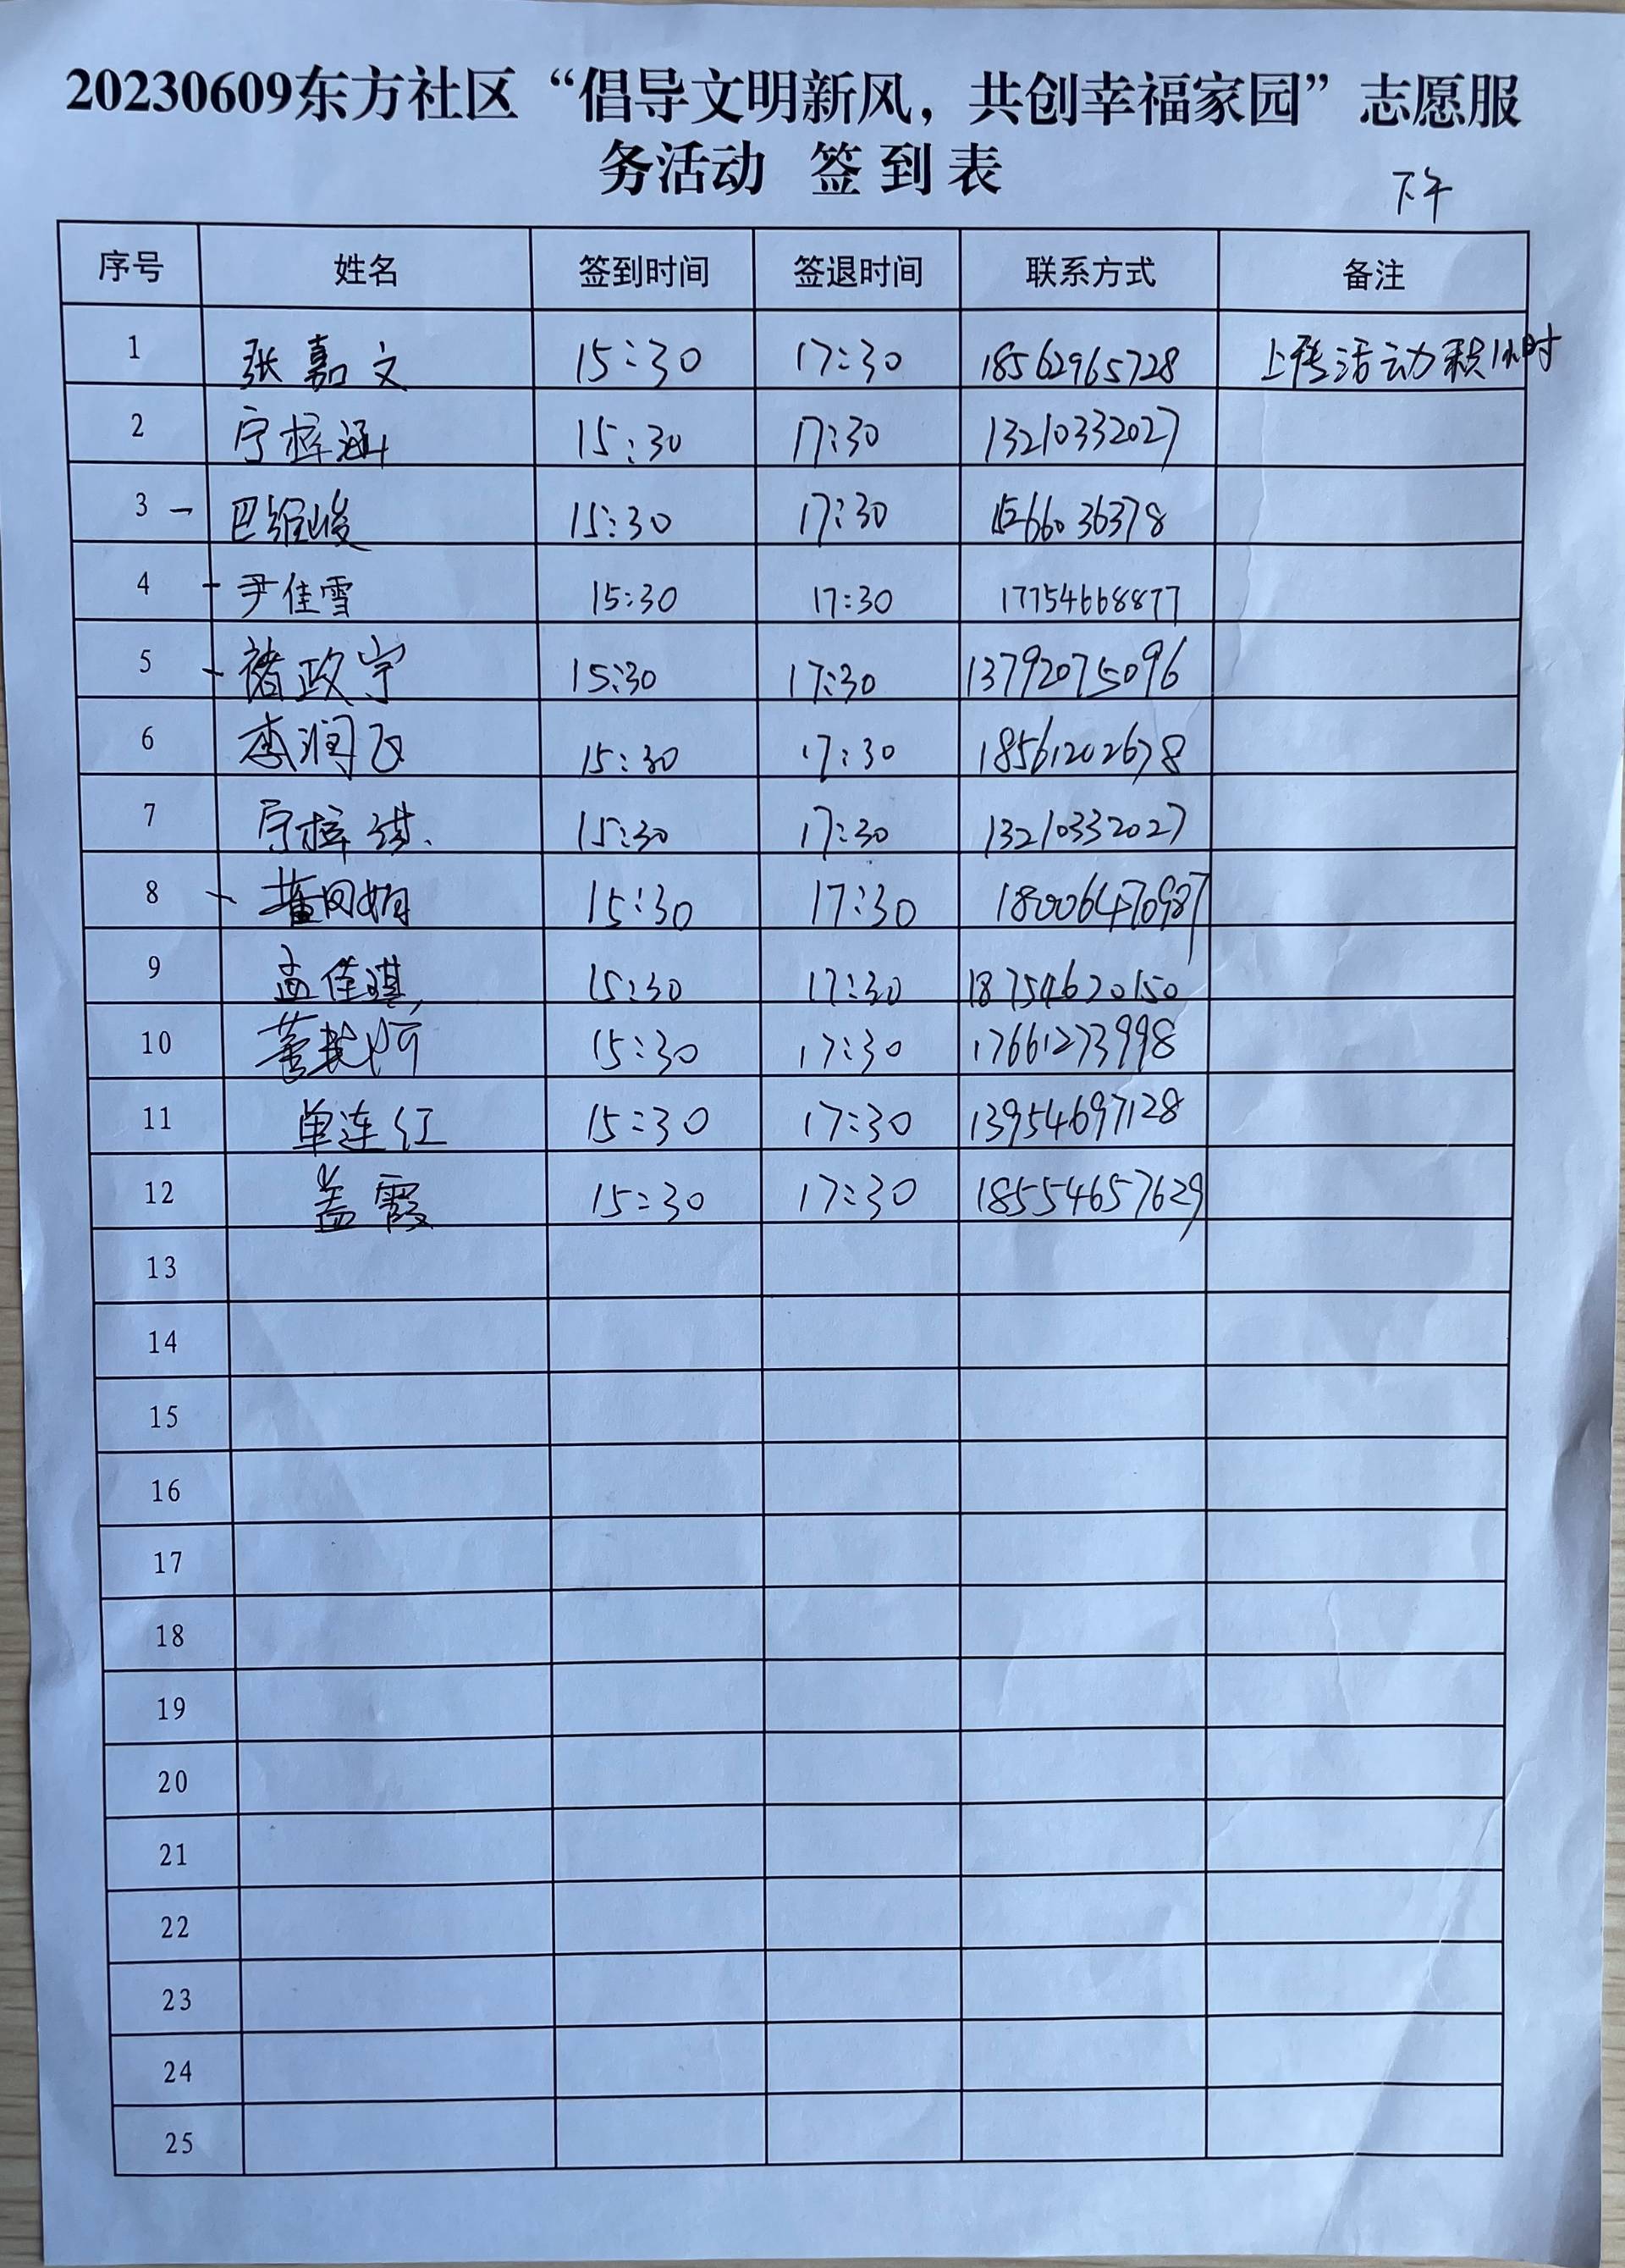 20230609东方社区“倡导文明新风，共创幸福家园”志愿服
务活动 签到表
下午
序号 姓名 签到时间 签退时间 联系方式 备注
1 张嘉文 15:30 17:30 18562965728 上传活动积1小时
2 宁梓涵 15:30 17:30 13210332027
3 巴维峻 15:30 17:30 15266036378
4 尹佳雪 15:30 17:30 17754668877
5 褚政宇 15:30 17:30 13792075096
6 李润飞 15:30 17:30 18561202678
7 宁梓琪 15:30 17:30 13210332027
8 15:30 17:30 18006470987
9 孟佳琪 15:30 17:30 18754620150
10 15:30 17:30 17661273998
11 单连红 15:30 17:30 13954697128
12 盖霞 15:30 17:30 18554657629
13
14
15
16
17
18
19
20
21
22
23
24
25